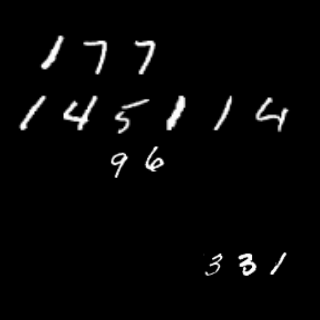 177
145114
96
331